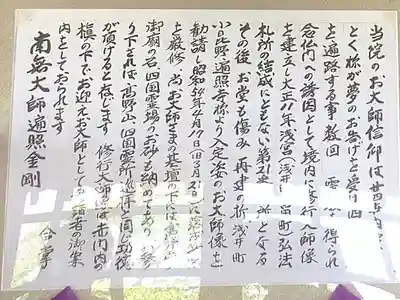 当院のお大師信仰は廿四
とく祢が夢のお告げを受け四
を遍路する事数回 霊 得られ
念仏門への誘因として境内に修行大師像
を建立し大正11年浅宮(浅井 留町弘法
札所の結成にともない第31番 所となる
その後 お堂も傷み 再建の折 浅井町
小日比野遍照寺様より入定姿のお大師像を
勧請し昭和54年4月17日(旧3月21日)に
を厳修 尚お大師さまの基壇の下には高野山
御廟の 四国霊場のお砂も納めてあり
り下されば高野山、四国霊所巡拝と同じ功徳
が頂けると存じます 修行大師さまは赤門内の
槙の下でお迎えお大師として 諸者の御案
内としておられます
南無大師遍照金剛
合掌